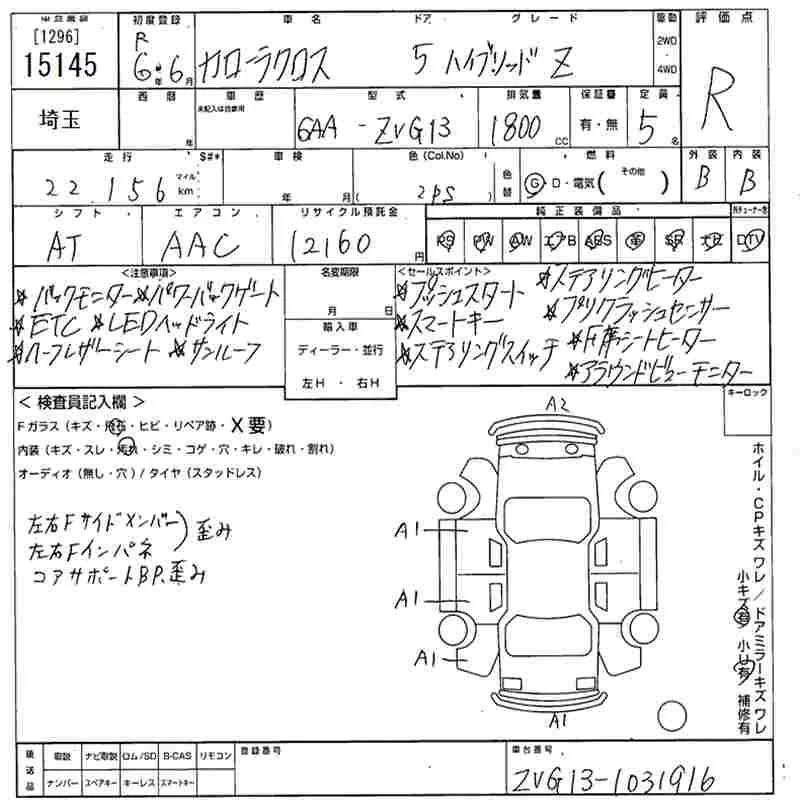 [1296]
15145
初度登録 車名 ドア グレード 駆動 評価点
R 6年6月 カローラクロス 5 ハイブリッド Z 2WD・4WD R
埼玉
西暦 車歴 型式 排気量 保証書 定員
年 未記入は自家用 6AA - ZVG13 1800 cc 有・無 5名
走行 $#* 車検 色(Col.No) 色替 燃料 外装 内装
22,156 マイル km 年 月 ( 2PS ) G・D・電気( その他 ) B B
シフト エアコン リサイクル預託金 純正装備品
AT AAC 12160円 PS PW AW エアB ABS 革 SR ナビ DTV
<注意事項> 名変期限 <セールスポイント>
☆バックモニター☆パワーバックゲート
☆ETC ☆LEDヘッドライト
☆ハーフレザーシート ☆サンルーフ
月 日
輸入車
ディーラー・並行
左H ・ 右H
☆プッシュスタート ☆ステアリングヒーター
☆スマートキー ☆プリクラッシュセンサー
☆ステアリングスイッチ ☆F席シートヒーター
☆アラウンドビューモニター
キーロック
<検査員記入欄>
Fガラス(キズ・飛石・ヒビ・リペア跡・X要)
内装(キズ・スレ・汚れ・シミ・コゲ・穴・キレ・破れ・割れ)
オーディオ(無し・穴)/タイヤ(スタッドレス)
左右Fサイドメンバー
左右Fインパネ
)歪み
コアサポートBP,歪み
A2
A1
A1
A1
A1
ホイル・CPキズワレ/ドアミラーキズワレ
小キズ有/小U有/補修有
後送品 取説 ナビ取説 ロム/SD B-CAS リモコン 登録番号 車台番号
ナンバー スペアキー キーレス スマートキー ZVG13-1031916